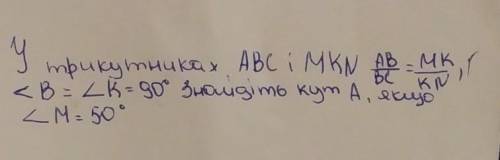 У трикутниках, ABC i MKN AB/BC = MK/KN,
∠B = ∠K = 90° Знайдіть кут A, якщо
∠M = 50°